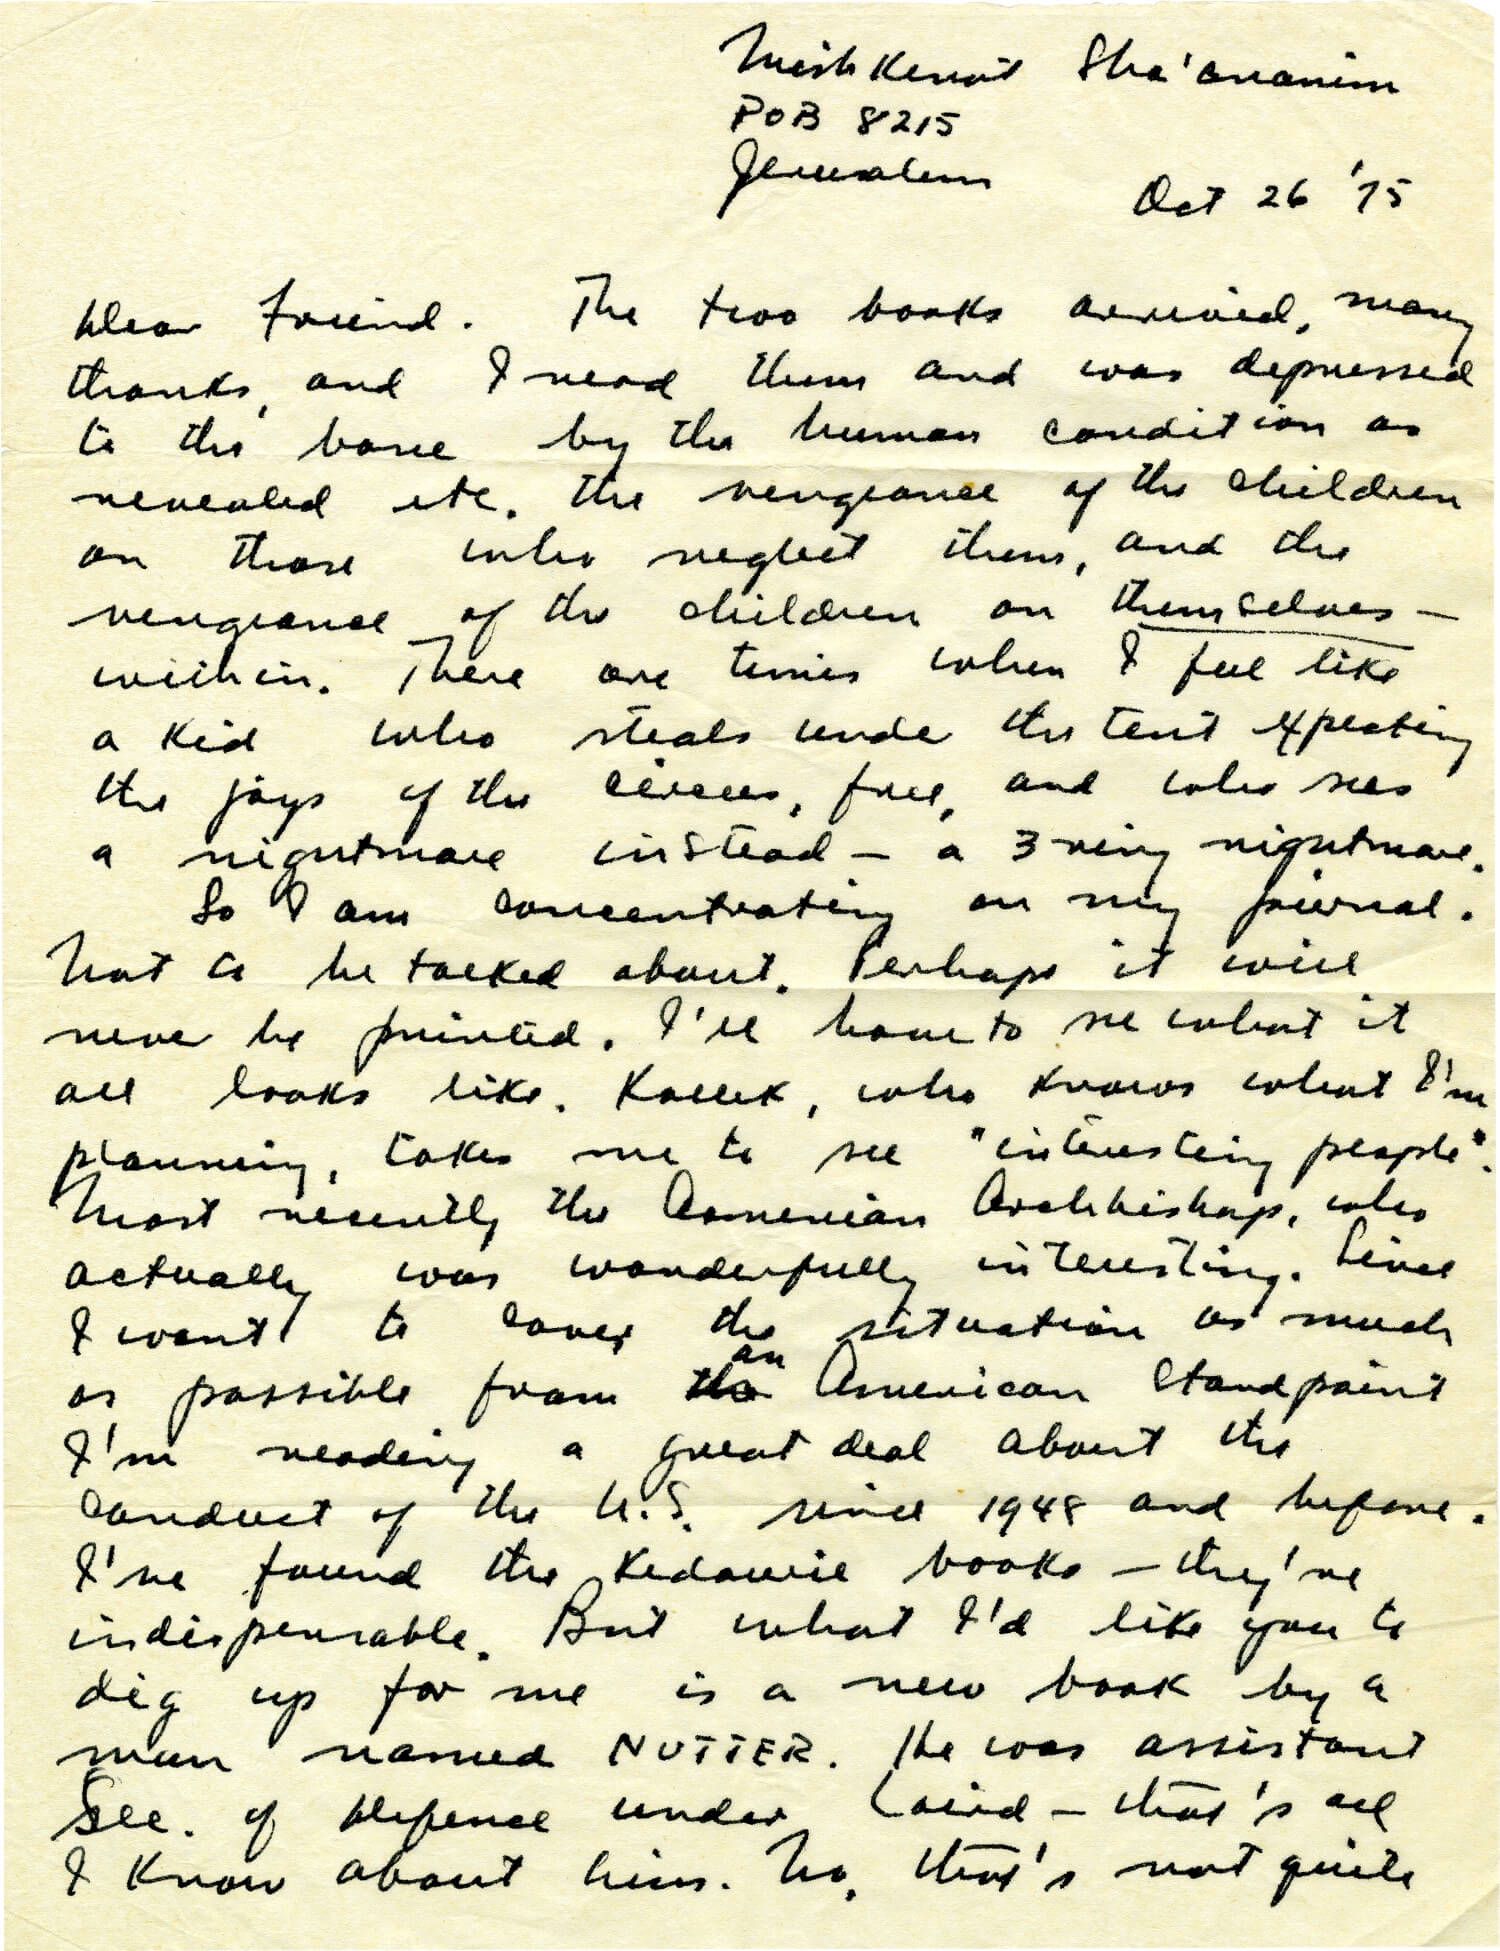 Mishkenot Sha'ananim
POB 8215
Jerusalem
Oct 26 '75
Dear Friend. The two books arrived, many
thanks, and I read them and was depressed
to the bone by the human condition as
revealed etc. The vengeance of the children
on those who neglect them, and the
vengeance of the children on themselves—
within. There are times when I feel like
a kid who steals under the tent expecting
the joys of the circus, free, and who sees
a nightmare instead — a 3 ring nightmare.
So I am concentrating on my journal.
Not to be talked about. Perhaps it will
never be printed. I'll have to see what it
all looks like. Kollek, who knows what I'm
planning, takes me to see "interesting people".
Most recently the Armenian Archbishop, who
actually was wonderfully interesting. Since
I want to cover the situation as much
as possible from the an American standpoint
I'm reading a great deal about the
conduct of the U.S. since 1948 and before.
I've found the Kedourie books — they're
indispensable. But what I'd like you to
dig up for me is a new book by a
man named NUTTER. He was assistant
Sec. of Defence under Laird — that's all
I know about him. No, that's not quite